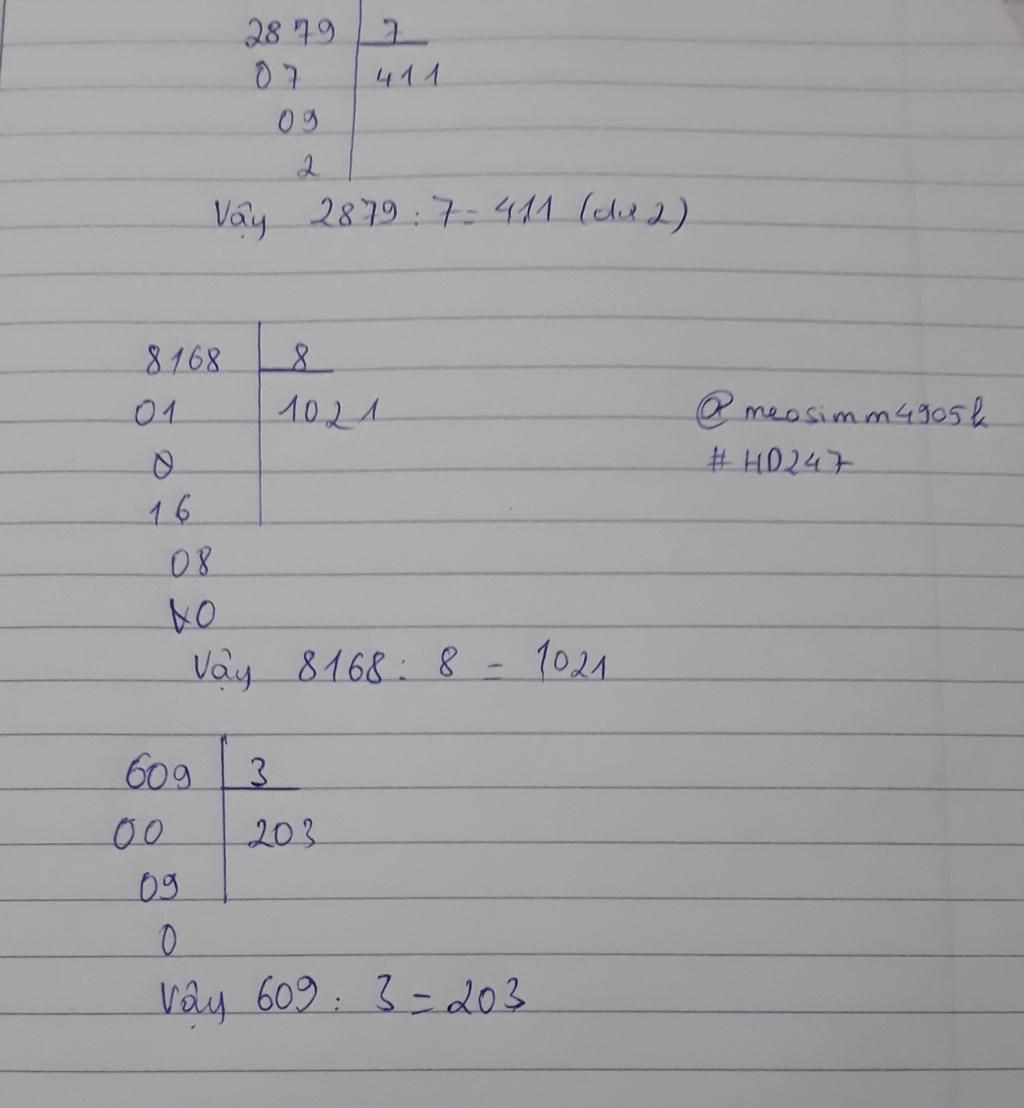 2879 7
07 411
09
2
Vậy 2879 : 7 = 411 (dư 2)
8168 8
01 1021
0
16
08
0
Vậy 8168 : 8 = 1021
@meosimm4905k
#HD247
609 3
00 203
09
0
Vậy 609 : 3 = 203